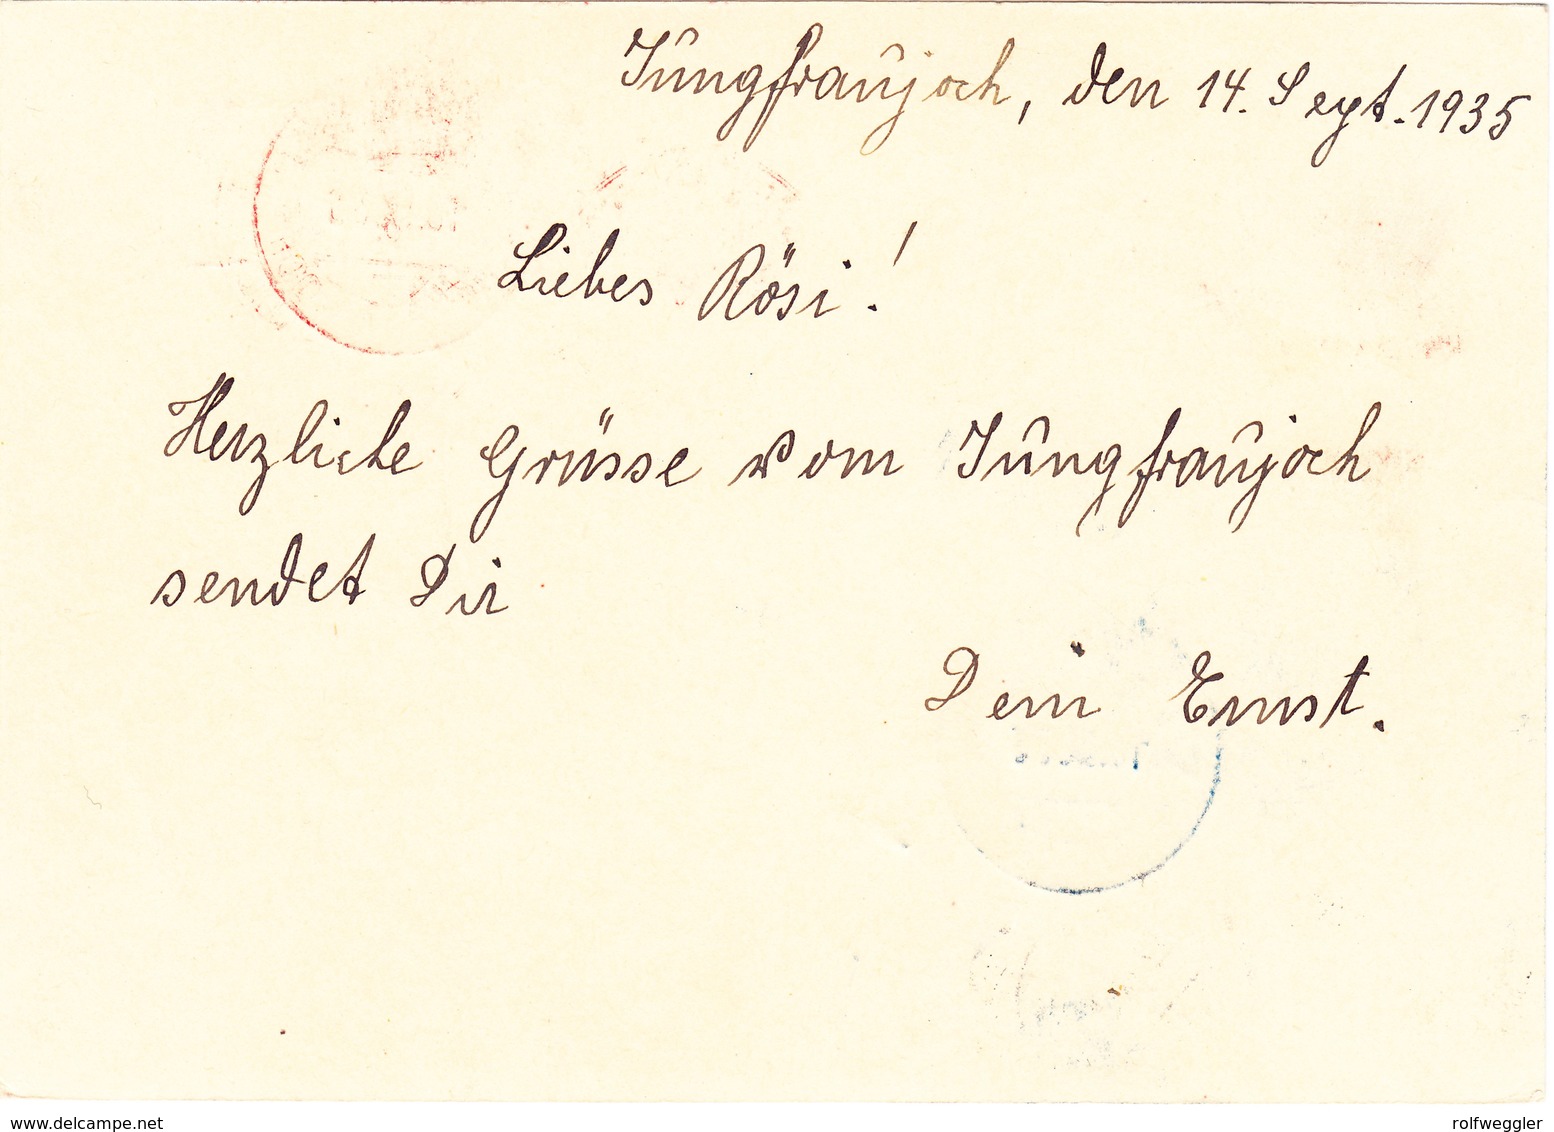 Jungfraujoch, den 14. Sept. 1935
Liebes Rösi!
Herzliche Grüsse vom Jungfraujoch
sendet Dir
Dein Ernst.
www.delcampe.net
rolfweggler